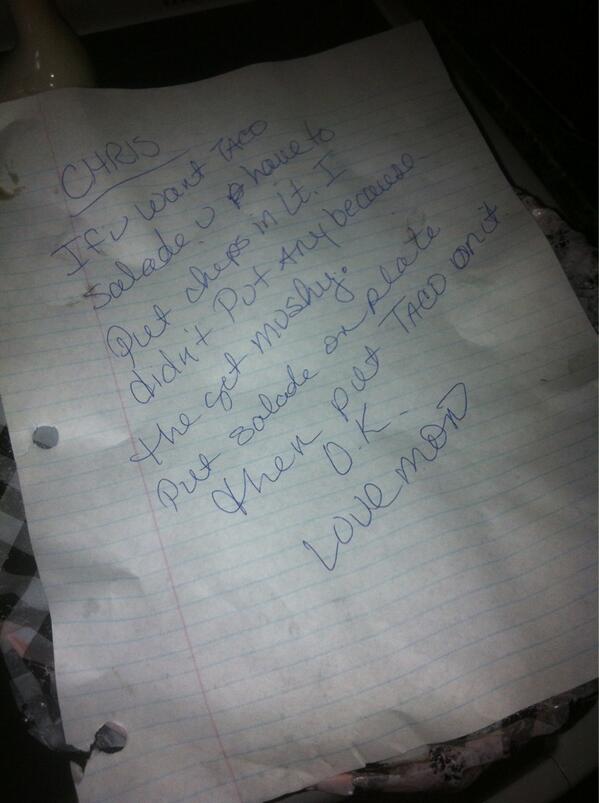 CHRIS
If u want TACO
Salade u have to
Put cheps in it. I
didn't Put Any because
the get mushy.
Put Salade on plate
then put TACO on it
O.K.
Love mom